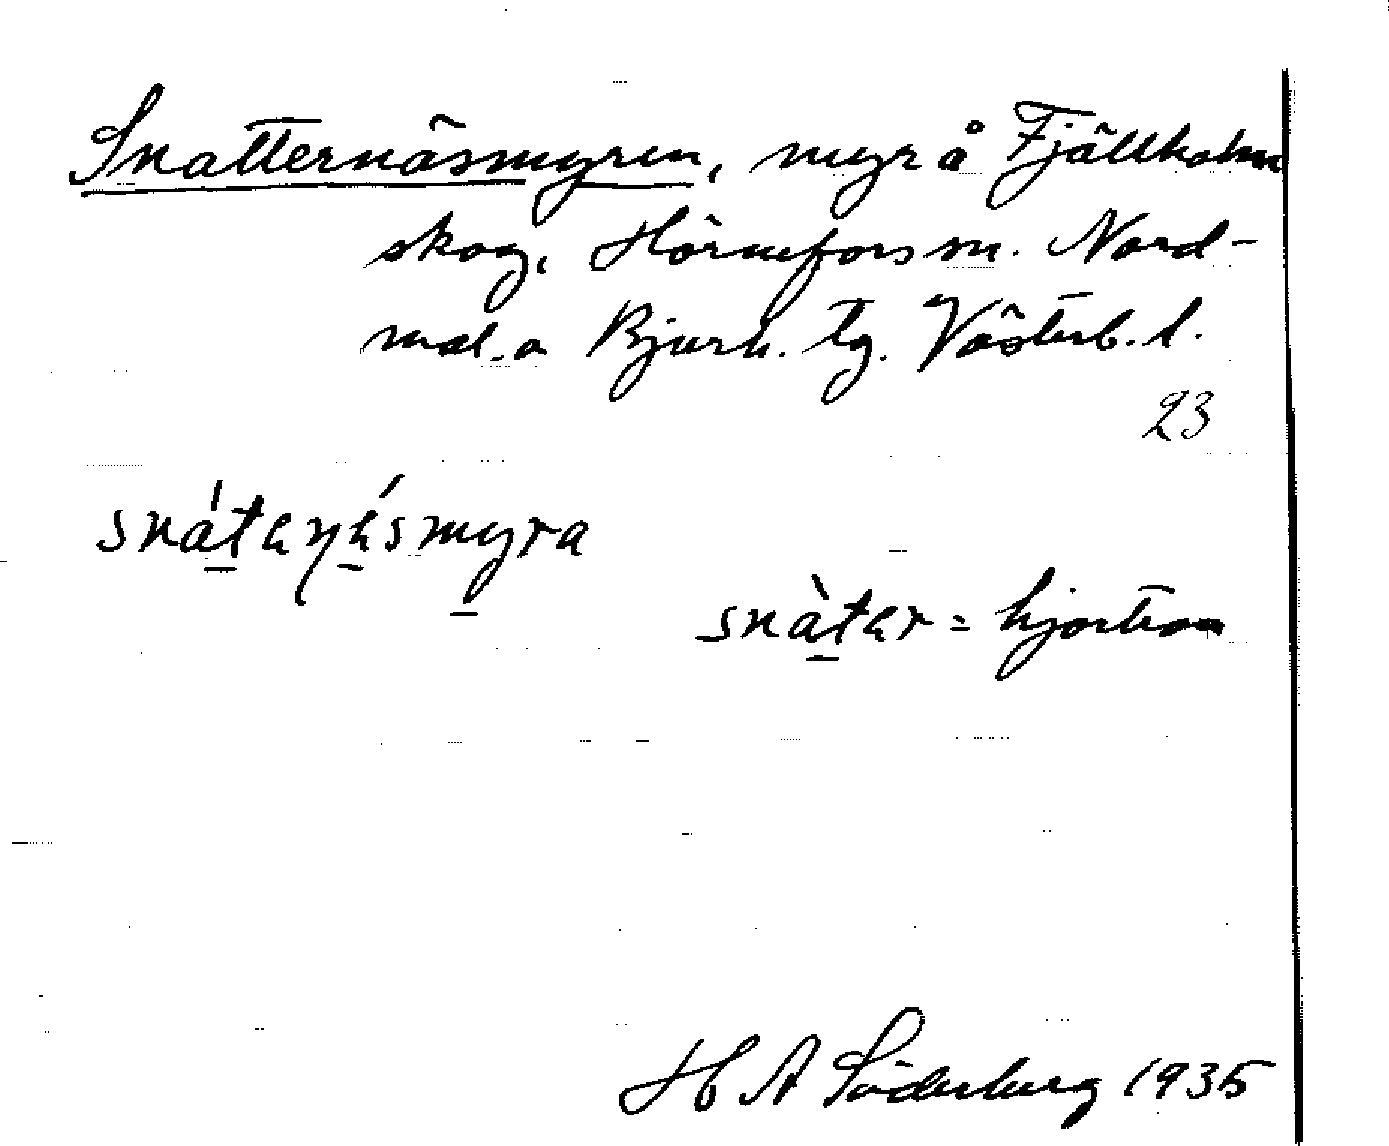 Snatternäsmyren, myr å Fjällholm
skog, Hörnefors sn. Nord-
mal. o Bjurh. tg. Västerb. l.
23
snátəŋǻsmyra
snàtər = hjortron
H A Söderberg 1935